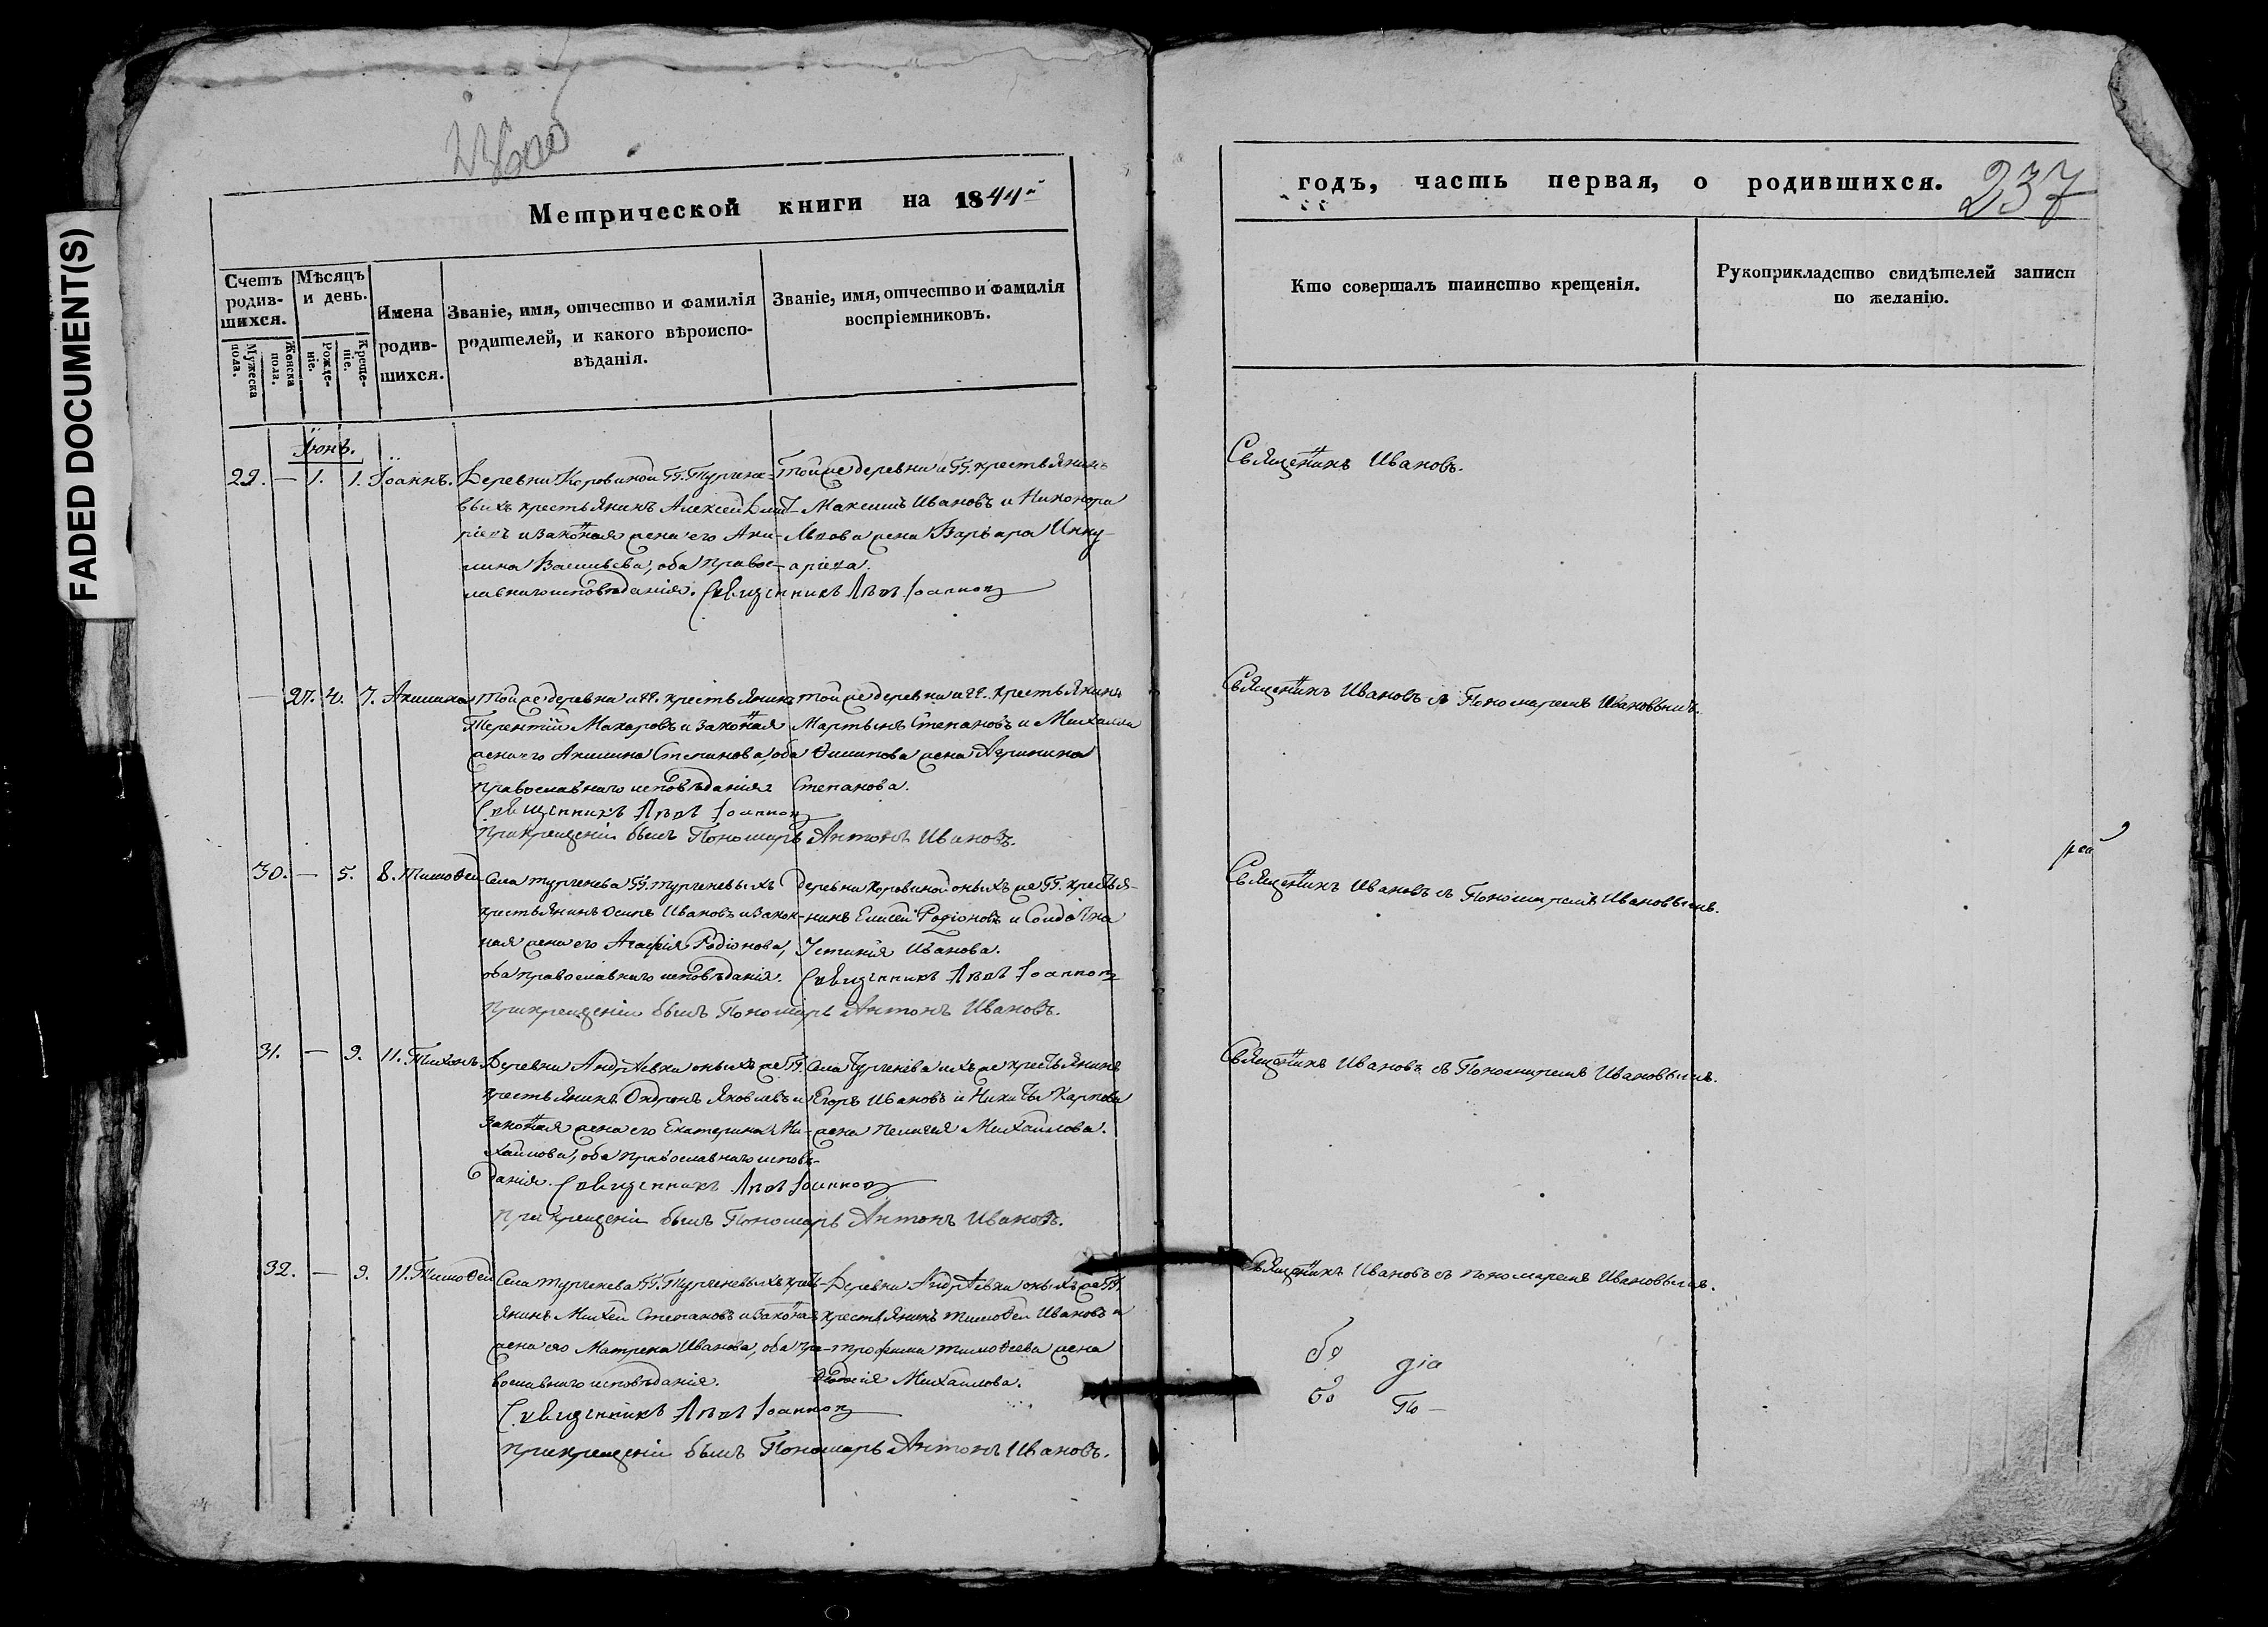 FADED DOCUMENT(S)
Метрической книги на 1844й
годъ, часть первая, о родившихся.
237
Счетъ родив-шихся.
Мужеска пола.
Женска пола.
Мѣсяцъ и день.
Рожде-ніе.
Креще-ніе.
Имена родив-шихся.
Званіе, имя, отчество и фамилія родителей, и какого вѣроиспо-вѣданія.
Званіе, имя, отчество и фамилія воспріемниковъ.
Кто совершалъ таинство крещенія.
Рукоприкладство свидѣтелей записи по желанію.
Іюнь.
29. — 1. 1. Іоаннъ.
Деревни Коровиной ГГ. Тургене-
выхъ крестьянинъ Алексей Дмит-
ріевъ и законная жена его Аки-
лина Васильева, оба правос-
лавнаго исповѣданія. Священникъ Левъ Іоанновъ
Тойже деревни и ГГ. крестьянинъ
Максимъ Ивановъ и Никонора
Львова жена Варвара
Священникъ Ивановъ.
— 27. 4. 7. Акилина
Тойже деревни и ГГ. крестьянинъ
Терентій Макаровъ и законная
жена его Акилина Степанова, оба
православнаго исповѣданія
Священникъ Левъ Іоанновъ
При крещеніи былъ Пономарь Антонъ Ивановъ.
тойже деревни и ГГ. крестьянинъ
Мартынъ Степановъ и Михаила
Филипова жена Агрипина
Степанова.
Священникъ Ивановъ с Пономаремъ Ивановымъ.
30. — 5. 8. Тимоѳей
Села Тургенева ГГ. Тургеневыхъ
крестьянинъ Осипъ Ивановъ и закон-
ная жена его Агафія Родіонова,
оба православнаго исповѣданія.
При крещеніи былъ Пономарь Антонъ Ивановъ.
деревни Коровиной оныхъ же ГГ. крестья-
нинъ Елисей Родіоновъ и Солдатка
Устинія Иванова.
Священникъ Левъ Іоанновъ
Священникъ Ивановъ съ Пономаремъ Ивановымъ.
31. — 9. 11. Тихонъ.
Деревни Андрѣевки оныхъ же ГГ.
крестьянинъ Ондронъ Яковлевъ и
законная жена его Екатерина Ми-
хайлова, оба православнаго исповѣ-
данія. Священникъ Левъ Іоанновъ
При крещеніи былъ Пономарь Антонъ Ивановъ.
Села Тургенева ихъ же крестьянинъ
Егоръ Ивановъ и Никиты Карпова
жена Пелагея Михайлова.
Священникъ Ивановъ съ Пономаремъ Ивановымъ.
32. — 9. 11. Тимоѳей
Села Тургенева ГГ. Тургеневыхъ крест-
янинъ Михей Степановъ и законная
жена его Матрена Иванова, оба пра-
вославнаго исповѣданія.
Священникъ Левъ Іоанновъ
При крещеніи былъ Пономарь Антонъ Ивановъ.
Деревни Андрѣевки оныхъ же ГГ.
крестьянинъ Тимоѳей Ивановъ и
Трофима Тимоѳеева жена
Михайлова.
Священникъ Ивановъ съ пономаремъ Ивановымъ.